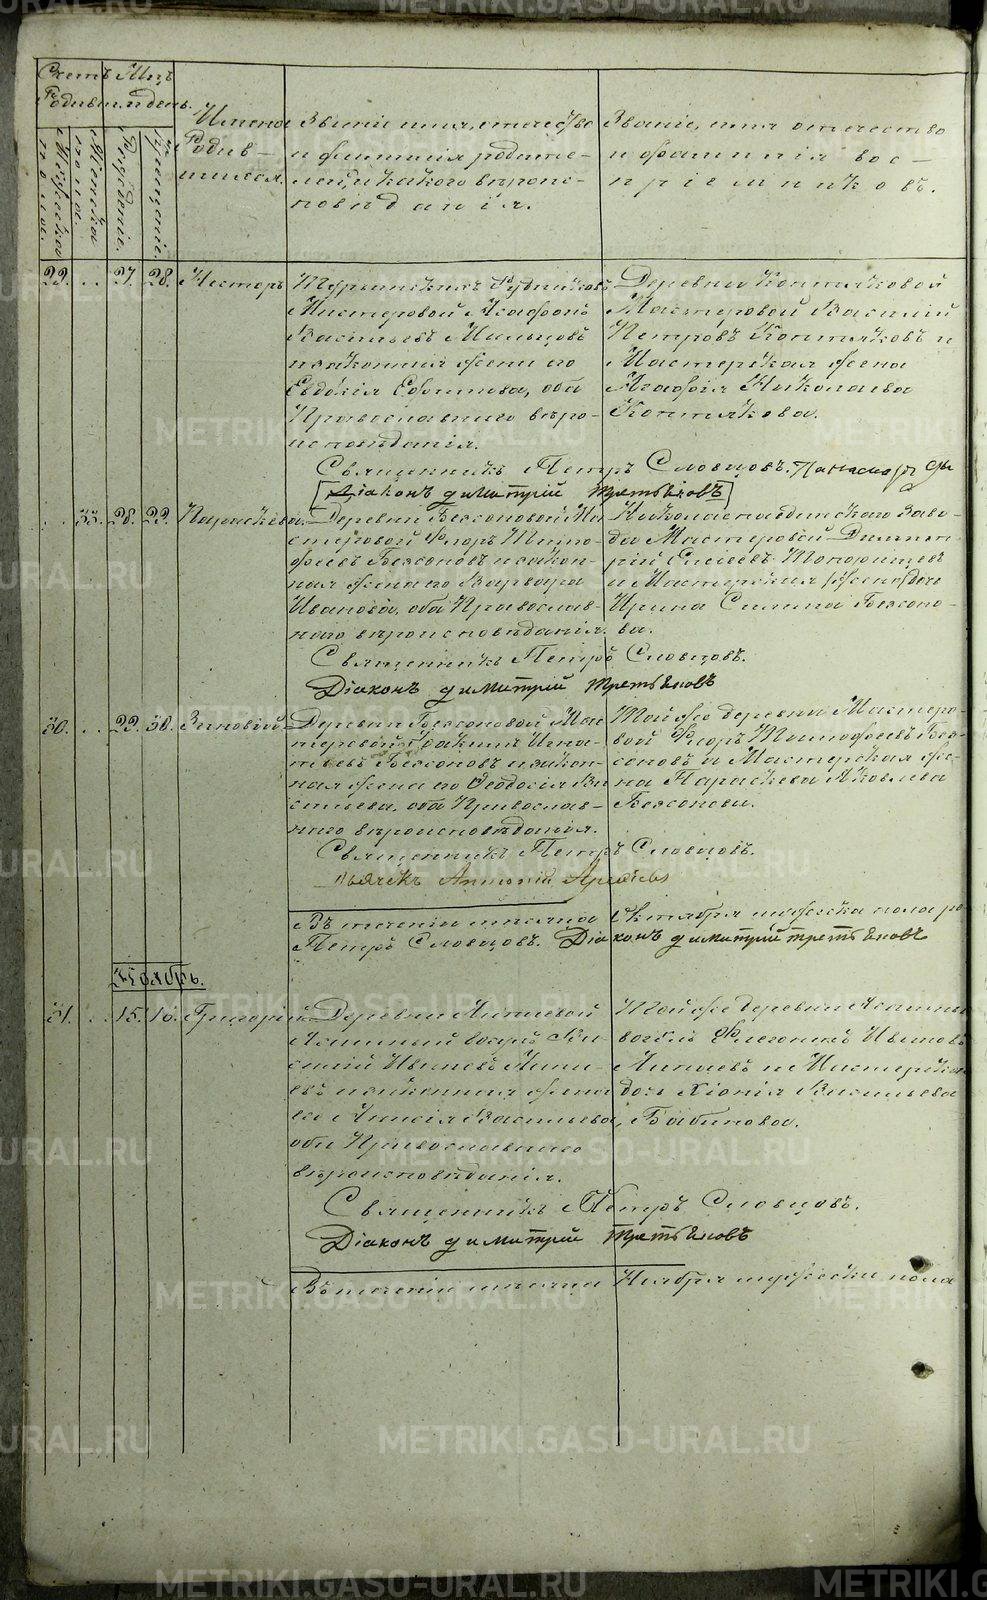 METRIKI.GASO-URAL.RU
Счетъ Мѣц.
Родивш. и день.
Имена
Родив-
шихся.
Званіе имя, отчество
и фамилія родите-
лей, и какого вѣроис-
повѣданія.
Званіе, имя отчество
и фамилія вос-
пріемниковъ.
Мужеска пола.
Женска пола.
Рожденіе.
Крещеніе.
29. .. 27. 28. Несторъ
Турьинскихъ Рудниковъ
Мастеровой Агафонъ
Васильевъ Мальцовъ
и законная жена его
Евдокія Ефимова, оба
Православнаго вѣро-
исповѣданія.
Деревни Коптяковой
Мастеровой Василій
Петровъ Коптяковъ и
Мастерская жена
Агафія Николаева
Коптякова.
Священникъ Петръ Словцовъ.
Діаконъ Димитрій Третьяковъ
.. 33. 28. 29. Параскева.
Деревни Бессоновой Ма-
стеровой Флоръ Тимо-
фѣевъ Бессоновъ и закон-
ная жена его Варвара
Иванова, оба Православ-
наго вѣроисповѣданія.
Николаепавдинскаго заво-
да Мастеровой Димит-
рій Елисѣевъ Топорищевъ
и Мастерская
Ирина Силина Бессоно-
ва.
Священникъ Петръ Словцовъ.
Діаконъ Димитрій Третьяковъ
30. .. 29. 30. Зиновій
Деревни Бессоновой Мас-
теровой Игна-
тьевъ Бессоновъ и закон-
ная жена его Ѳеодосія Ва-
сильева, оба Православ-
наго вѣроисповѣданія.
Той же деревни Мастеро-
вой Флоръ Тимофѣевъ Бес-
соновъ и Мастерская же-
на Параскева Яковлева
Бессонова.
Священникъ Петръ Словцовъ.
Дьячекъ Антоній
Въ теченіи мѣсяца Октября мужеска пола ро-
Петръ Словцовъ. Діаконъ Димитрій Третьяковъ
Ноябрь.
31. .. 15. 16. Григорій
Деревни Лапаевой
Ва-
силій Ивановъ Лапа-
евъ и законная жена
его Анисія Васильева,
оба Православнаго
вѣроисповѣданія.
Той же деревни
Флегонтъ Ивановъ
Лапаевъ и Мастерская
дочь Хіонія Васильева
Бабинова.
Священникъ Петръ Словцовъ.
Діаконъ Димитрій Третьяковъ
Въ теченіи мѣсяца Ноября мужеска пола
METRIKI.GASO-URAL.RU